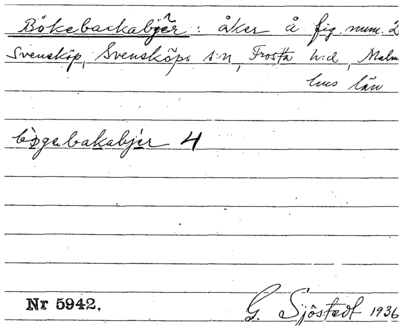 Bökebackabjer : åker å fig. num. 2
Svensköp, Svensköps s:n, Frosta h:d, Malmö
hus län
bøgabakabjer 4
Nr 5942. G. Sjöstedt 1936